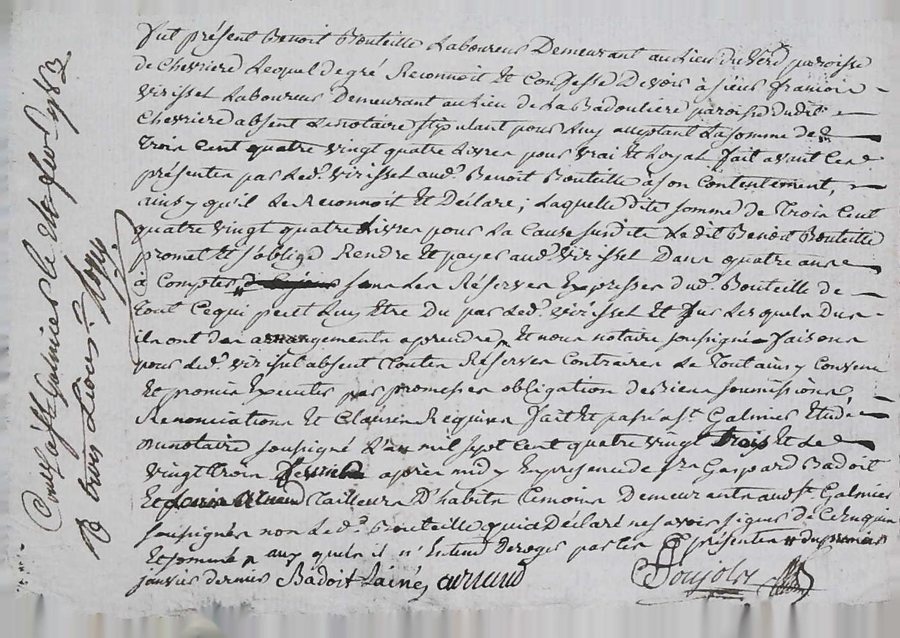 fut présent Benoit Bouteille Laboureur Demeurant au Lieu du Verd paroisse
de Chevriere Lequel de gré Reconnoit Et Confesse Devoir à sieur francois
Virissel Laboureur Demeurant au Lieu de La Badouliere paroisse dudit
Chevriere absent Le notaire stipulant pour Luy acceptant La somme de
Trois Cent quatre vingt quatre Livres pour vrai Et Loyal fait avant Ces
présentes par Led. Virissel aud. Benoit Bouteille à son Contentement,
ainsy qu'il Le Reconnoit Et Déclare; Laquelle dite somme de Trois Cent
quatre vingt quatre Livres pour La Cause susdite Ledit Benoit Bouteille
promet Et s'oblige Rendre Et payer aud. Virissel Dans quatre ans
à Compter sans Les Réserves Expresses dud. Bouteille de
Tout Ce qui peut Luy Etre Du par Led. Virissel Et sur Lesquels Dus
ils ont des arrangements a prendre, Et nous notaire soussigné faisons
pour Led. Virissel absent Toutes Réserves Contraires Le Tout ainsy Convenu
Et promis Executer par promesses obligation de Biens soumissions,
Renonciations Et Clauses Requises fait Et passé a St. Galmier Etude
du notaire soussigné L'an mil sept Cent quatre vingt trois Et Le
Vingt trois apres midy En presence de sr. Gaspard Badoit
Et arnaud Tailleur D'habits Temoins Demeurants aud. St. Galmier
soussignés non Led. Bouteille qui a Déclaré ne savoir signer de Ce Enquis
Et sommé aux quels il n'Entend deroger par Les présentes du premier
janvier dernier Badoit Lainé, arnaud
Pdt. trois Livres